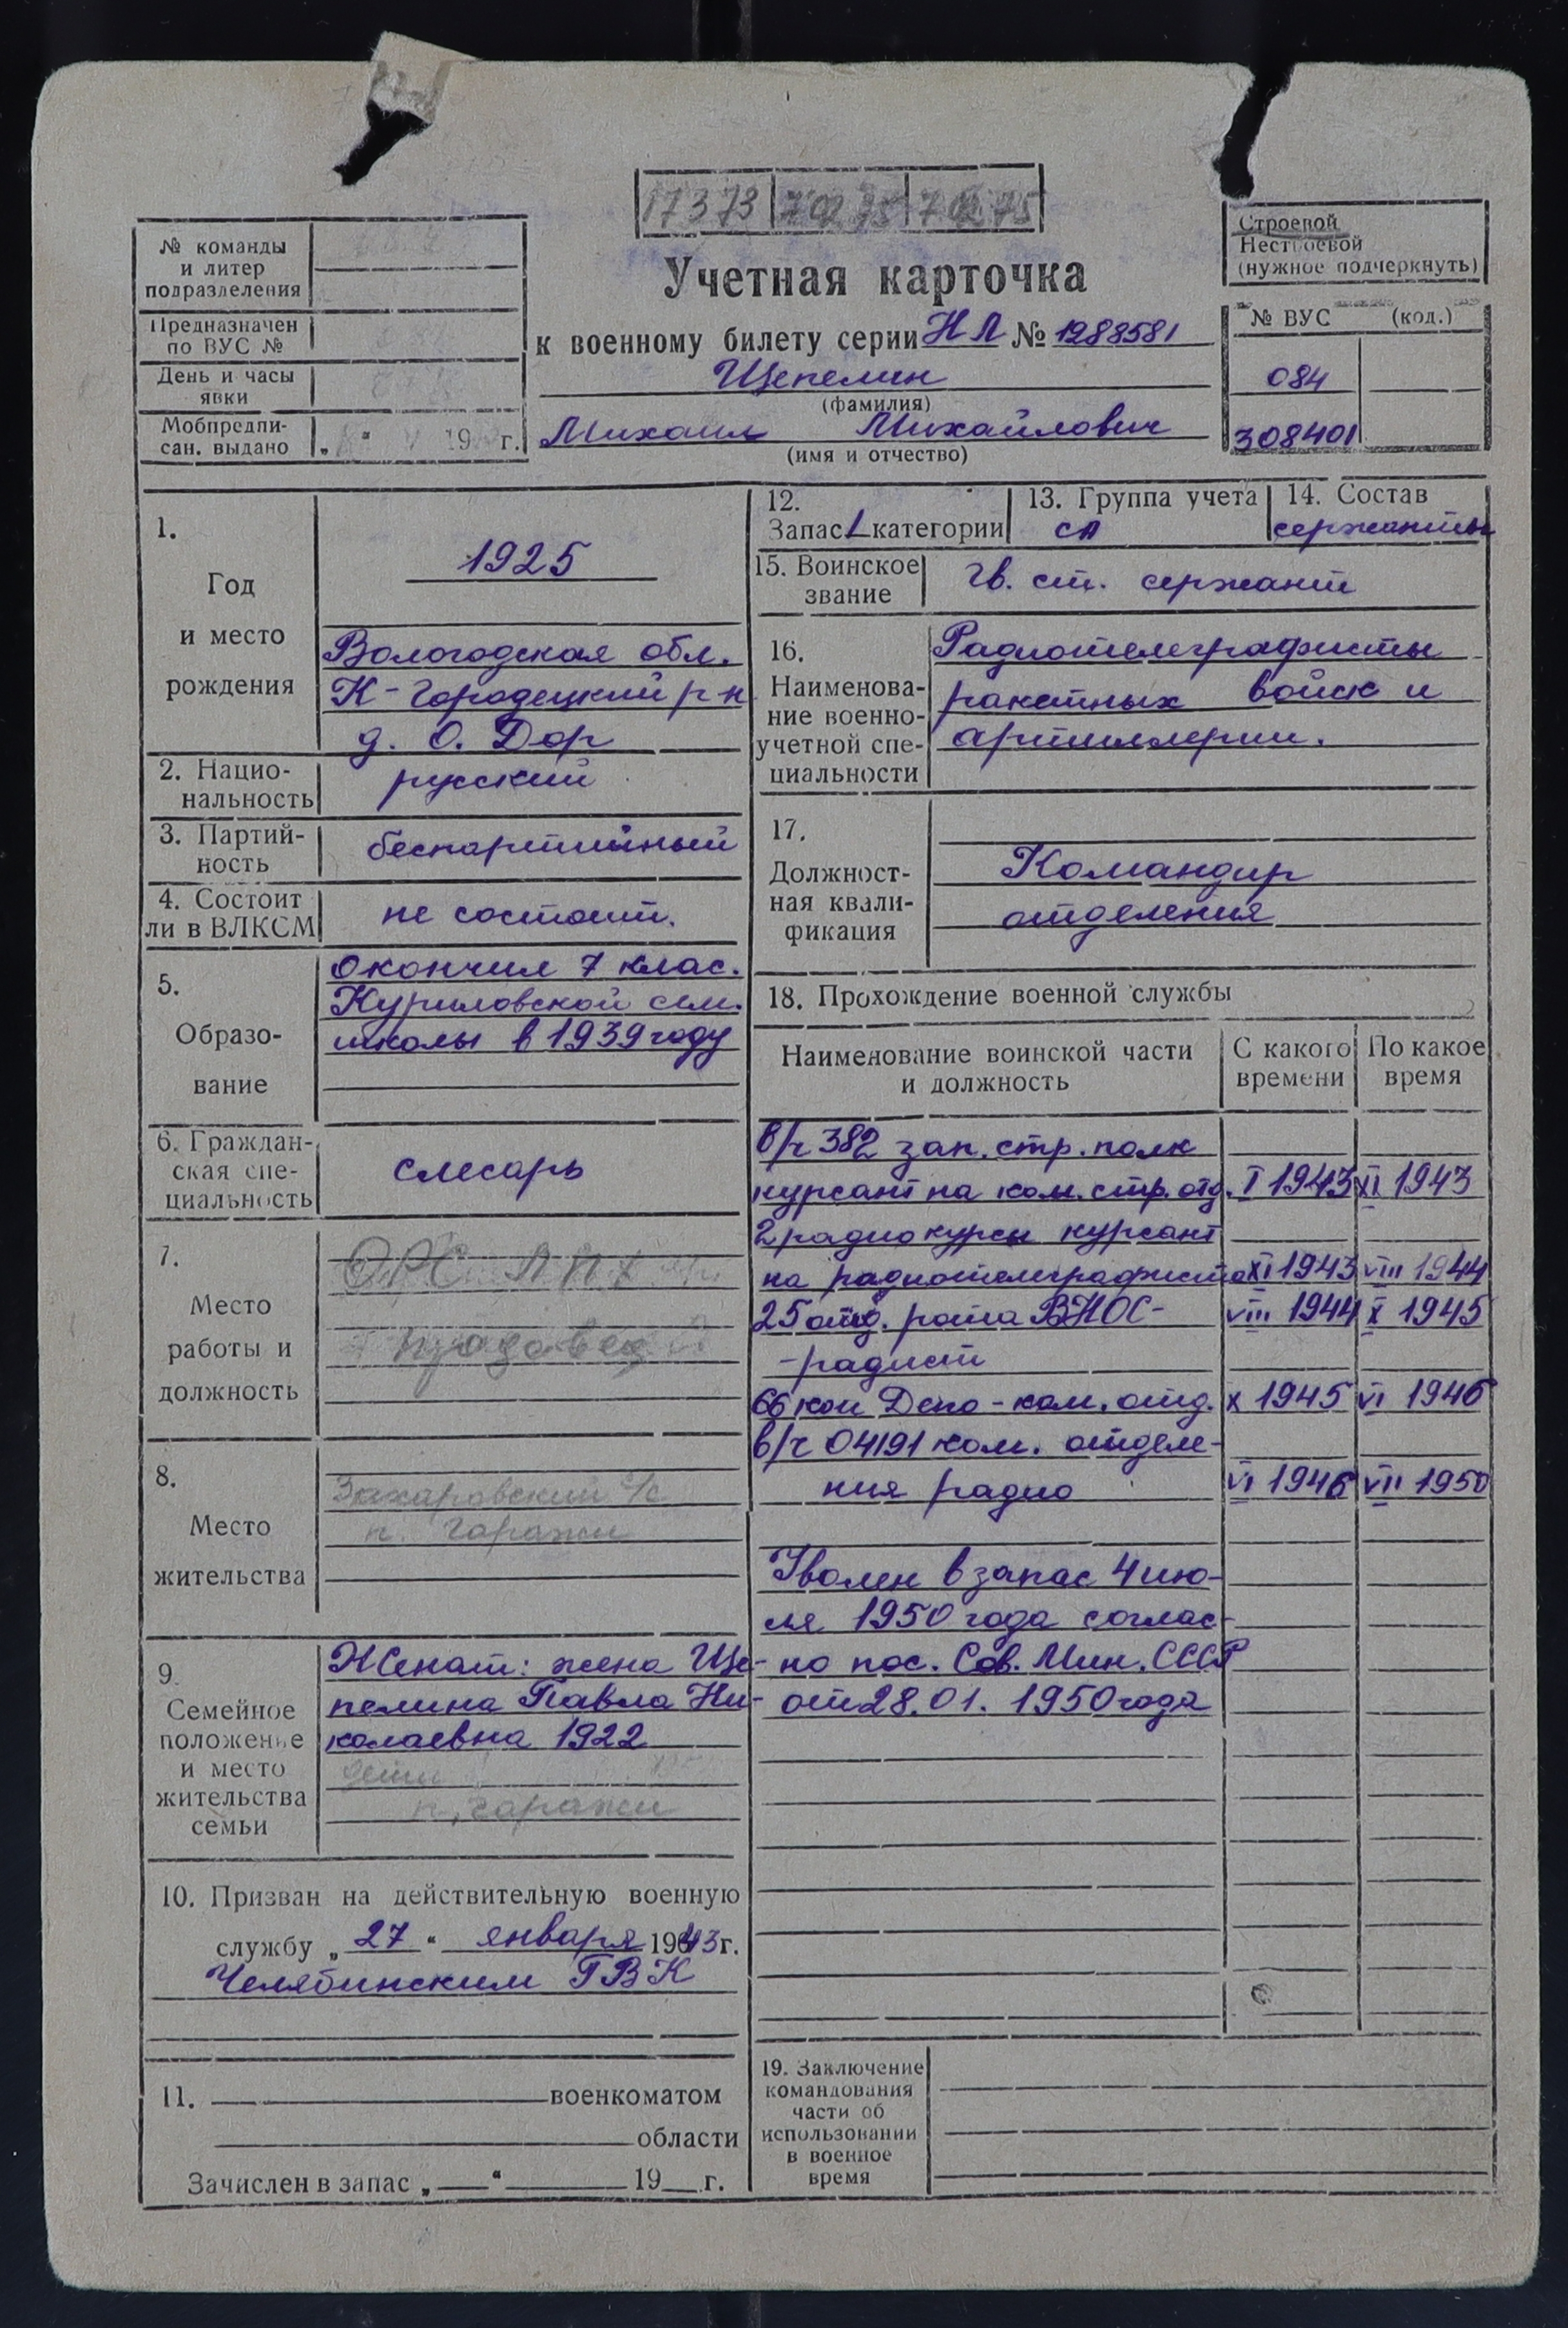 17373
Строевой
Нестроевой
(нужное подчеркнуть)
№ команды
и литер
подразделения
Предназначен
по ВУС №
День и часы
явки
Мобпредпи-
сан. выдано „ “ 19 г.
Учетная карточка
к военному билету серии НЛ № 1288581
Щепелин
(фамилия)
Михаил Михайлович
(имя и отчество)
№ ВУС (код.)
084
308401
1.
Год
и место
рождения
1925
Вологодская обл.
К-Городецкий р-н
д. О. Дор
2. Нацио-
нальность
русский
3. Партий-
ность
беспартийный
4. Состоит
ли в ВЛКСМ
не состоит.
5.
Образо-
вание
Окончил 7 клас.
Куриловской сем.
школы в 1939 году
6. Граждан-
ская спе-
циальность
слесарь
7.
Место
работы и
должность
ОРС ЛПХ
продавец
8.
Место
жительства
Захаровский с/с
п. Гаражи
9.
Семейное
положение
и место
жительства
семьи
Женат: жена Ще-
пелина Павла Ни-
колаевна 1922
дети
п. Гаражи
10. Призван на действительную военную
службу „27“ января 1943 г.
Челябинским ГВК
11. военкоматом
области
Зачислен в запас „ “ 19 г.
12.
Запас 1 категории
13. Группа учета
СА
14. Состав
сержанты
15. Воинское
звание
Гв. ст. сержант
16.
Наименова-
ние военно-
учетной спе-
циальности
Радиотелеграфисты
ракетных войск и
артиллерии.
17.
Должност-
ная квали-
фикация
Командир
отделения
18. Прохождение военной службы
Наименование воинской части
и должность
С какого
времени
По какое
время
в/ч 382 зап. стр. полк
курсант на ком. стр. отд. I 1943 XI 1943
2 радио курсы курсант
на радиотелеграфиста XI 1943 VIII 1944
25 отд. рота ВНОС- VIII 1944 X 1945
-радист
66 кон Депо - ком. отд. X 1945 VI 1946
в/ч 04191 ком. отделе-
ния радио VI 1946 VII 1950
Уволен в запас 4 ию-
ля 1950 года соглас-
но пос. Сов. Мин. СССР
от 28.01.1950 года
19. Заключение
командования
части об
использовании
в военное
время